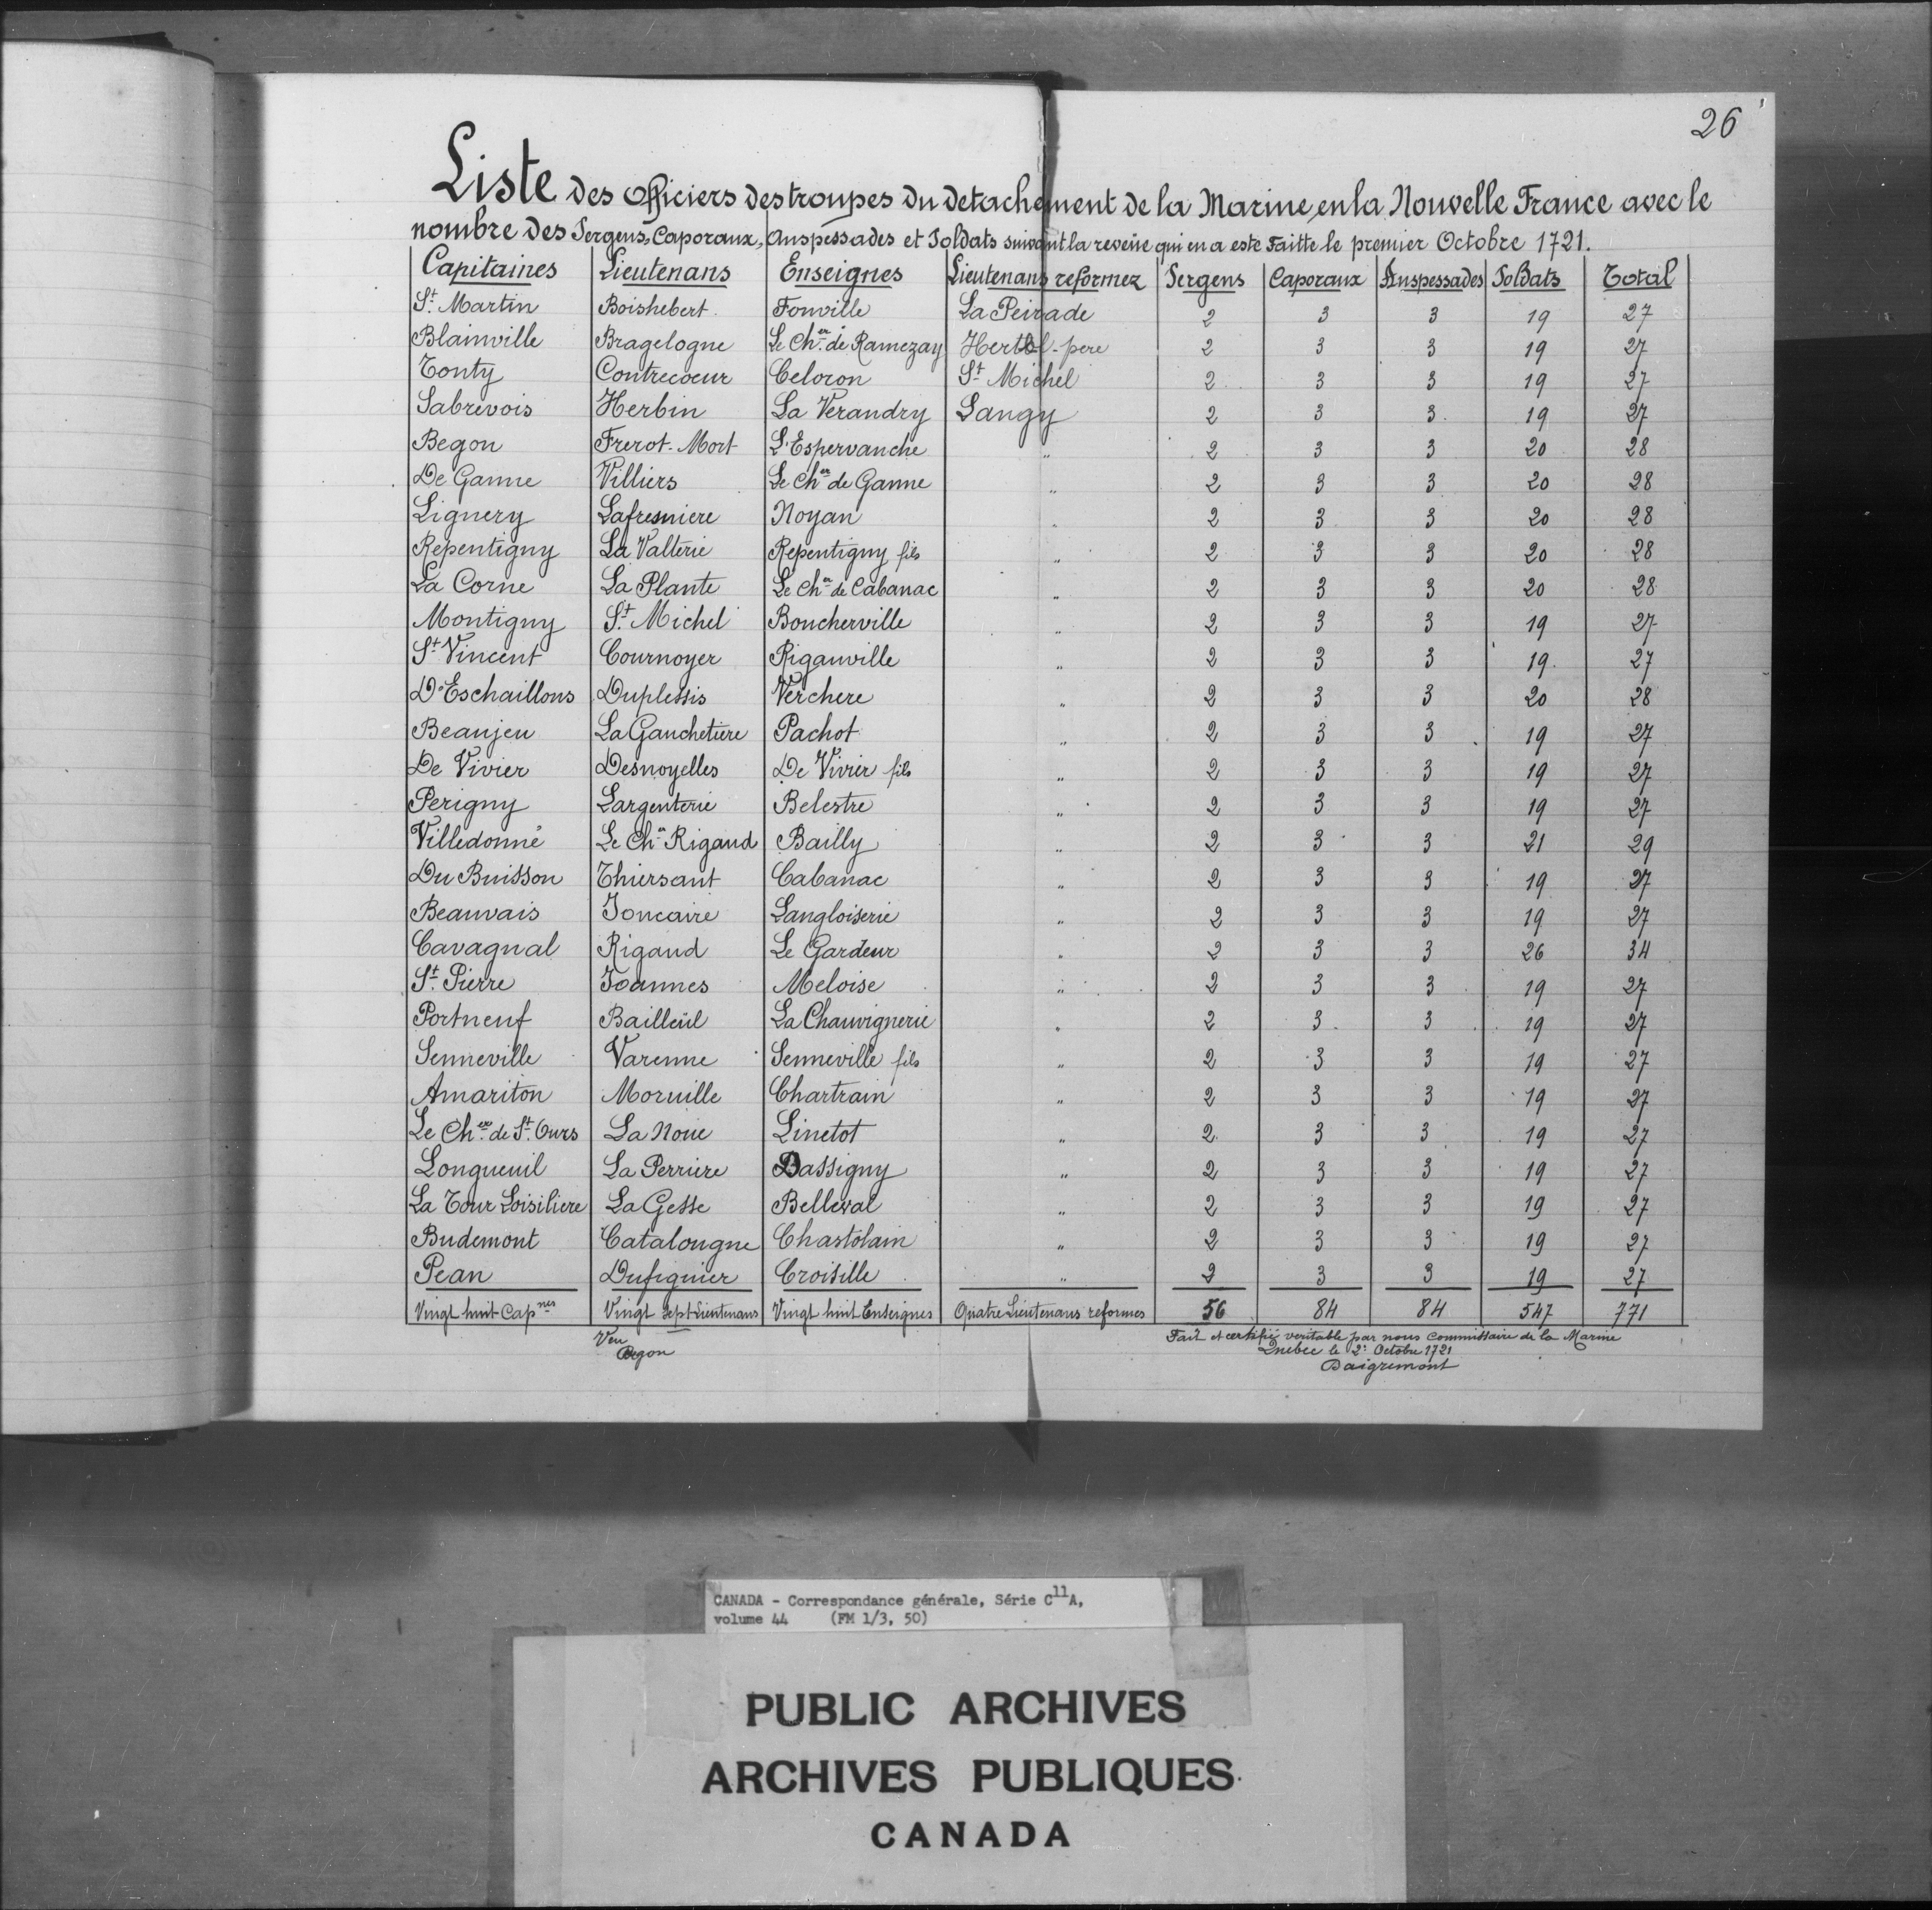 26
Liste des officiers des troupes du detachement de la Marine, en la Nouvelle France avec le
nombre des Sergens, Caporaux, Anspessades et Soldats suivant la reveüe qui en a este Faitte le premier Octobre 1721.
Capitaines Lieutenans Enseignes Lieutenans reformez Sergens Caporaux Anspessades Soldats Total
St. Martin Boishebert Fonville La Peirade 2 3 3 19 27
Blainville Bragelogne Le Cher. de Ramezay Hertel-pere 2 3 3 19 27
Tonty Contrecoeur Celoron St Michel 2 3 3 19 27
Sabrevois Herbin La Verandry Langy 2 3 3 19 27
Begon Frerot-Mort L'Espervanche " 2 3 3 20 28
De Ganne Villiers Le Cher de Ganne " 2 3 3 20 28
Lignery Lafresniere Noyan " 2 3 3 20 28
Repentigny La Valterie Repentigny fils " 2 3 3 20 28
La Corne La Plante Le Cher de Cabanac " 2 3 3 20 28
Montigny St. Michel Boucherville " 2 3 3 19 27
St. Vincent Cournoyer Riganville " 2 3 3 19 27
D'Eschaillons Duplessis Verchere " 2 3 3 20 28
Beaujeu La Gauchetiere Pachot " 2 3 3 19 27
De Vivier Desnoyelles De Vivier fils " 2 3 3 19 27
Perigny Largenterie Belestre " 2 3 3 19 27
Villedonné Le Cher Rigaud Bailly " 2 3 3 21 29
Du Buisson Thiersant Cabanac " 2 3 3 19 27
Beauvais Joncaire Langloiserie " 2 3 3 19 27
Cavagnal Rigaud Le Gardeur " 2 3 3 26 34
St. Pierre Joannes Meloise " 2 3 3 19 27
Portneuf Bailleül La Chauvignerie " 2 3 3 19 27
Senneville Varenne Senneville fils " 2 3 3 19 27
Amariton Moruille Chartrain " 2 3 3 19 27
Le Cher. de St. Ours La Noüe Linetot " 2 3 3 19 27
Longueuil La Perriere Dassigny " 2 3 3 19 27
La Tour Loisiliere La Gesse Belleval " 2 3 3 19 27
Budemont Catalougne Chastolain " 2 3 3 19 27
Pean Dufiguier Croisille " 2 3 3 19 27
Vingt huit Capnes Vingt sept Lieutenans Vingt huit Enseignes Quatre Lieutenans reformes 56 84 84 547 771
Veu Fait et certifié veritable par nous Commissaire de la Marine
Begon Quebec le 2e Octobre 1721
Daigremont
CANADA - Correspondance générale, Série C11A,
volume 44 (FM 1/3, 50)
PUBLIC ARCHIVES
ARCHIVES PUBLIQUES
CANADA